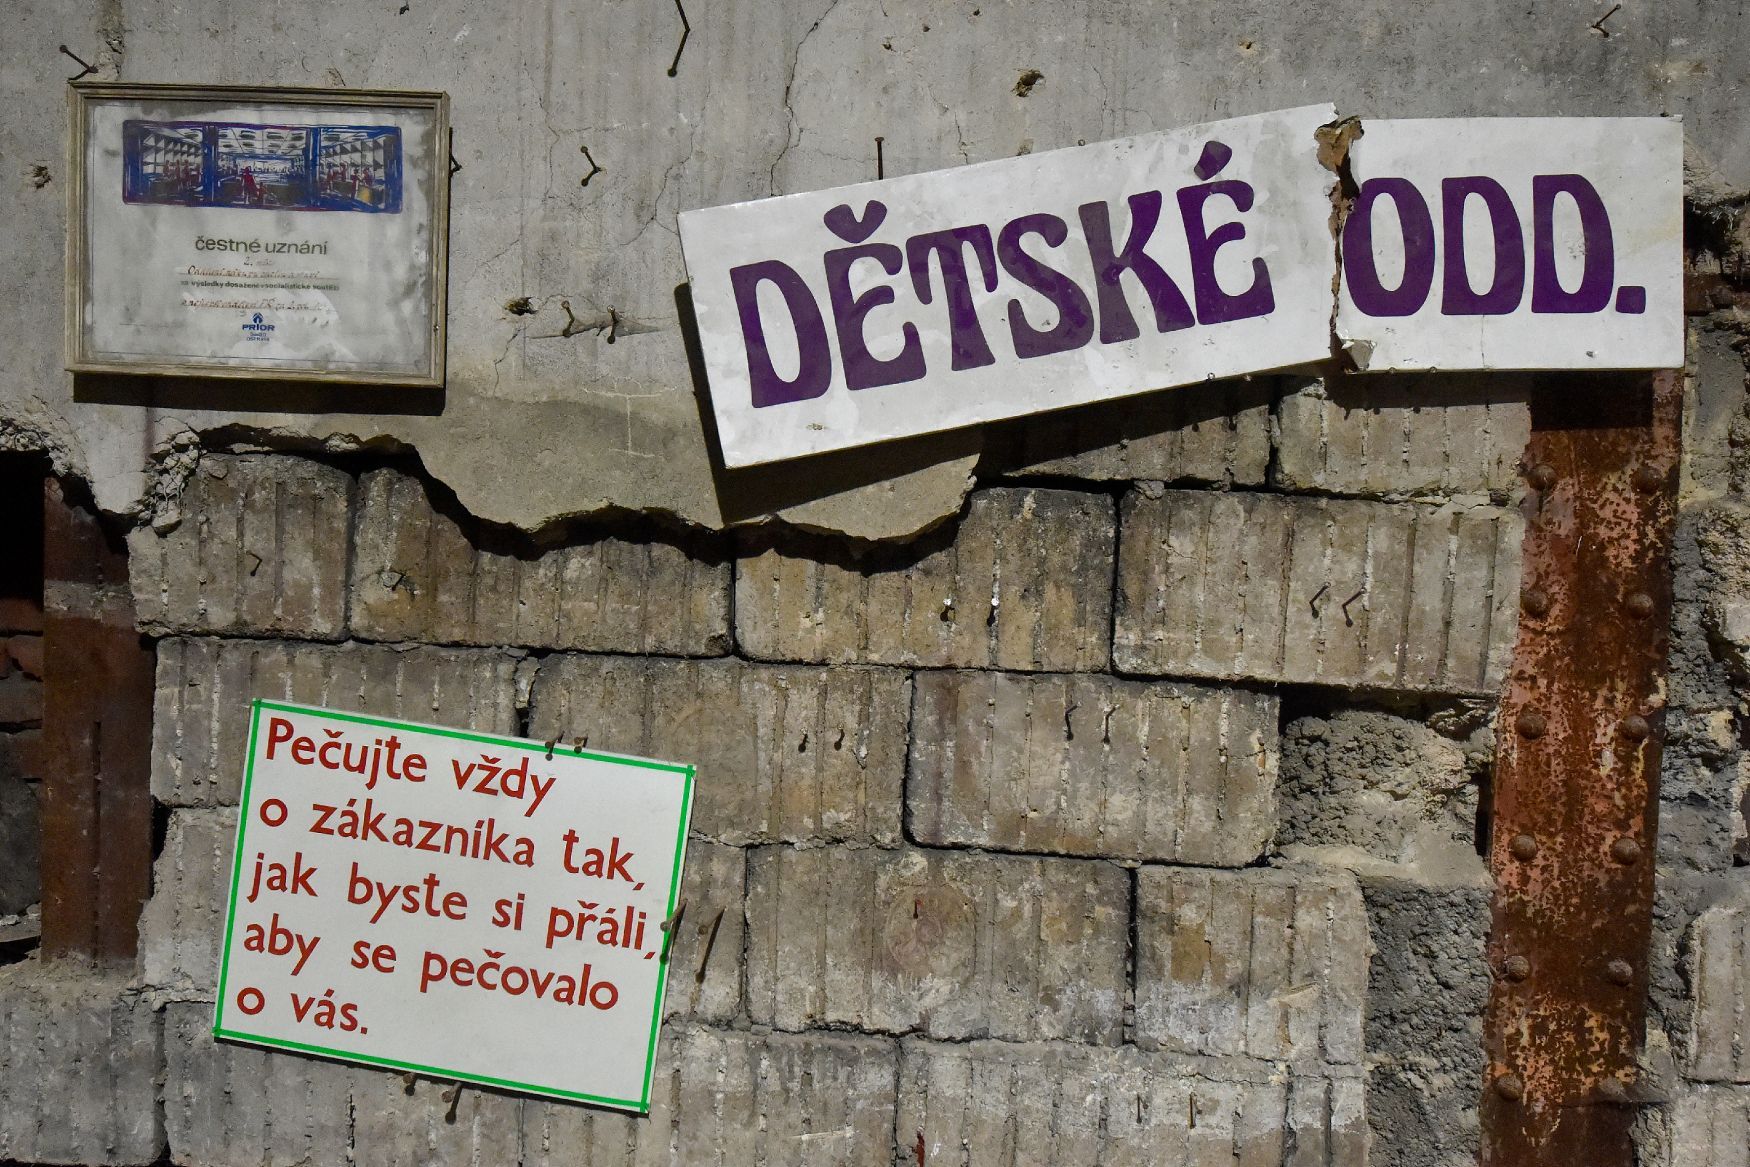 čestné uznání
za výsledky dosažené v socialistické soutěži
PRIOR
OSTRAVA
DĚTSKÉ ODD.
Pečujte vždy
o zákazníka tak,
jak byste si přáli,
aby se pečovalo
o vás.